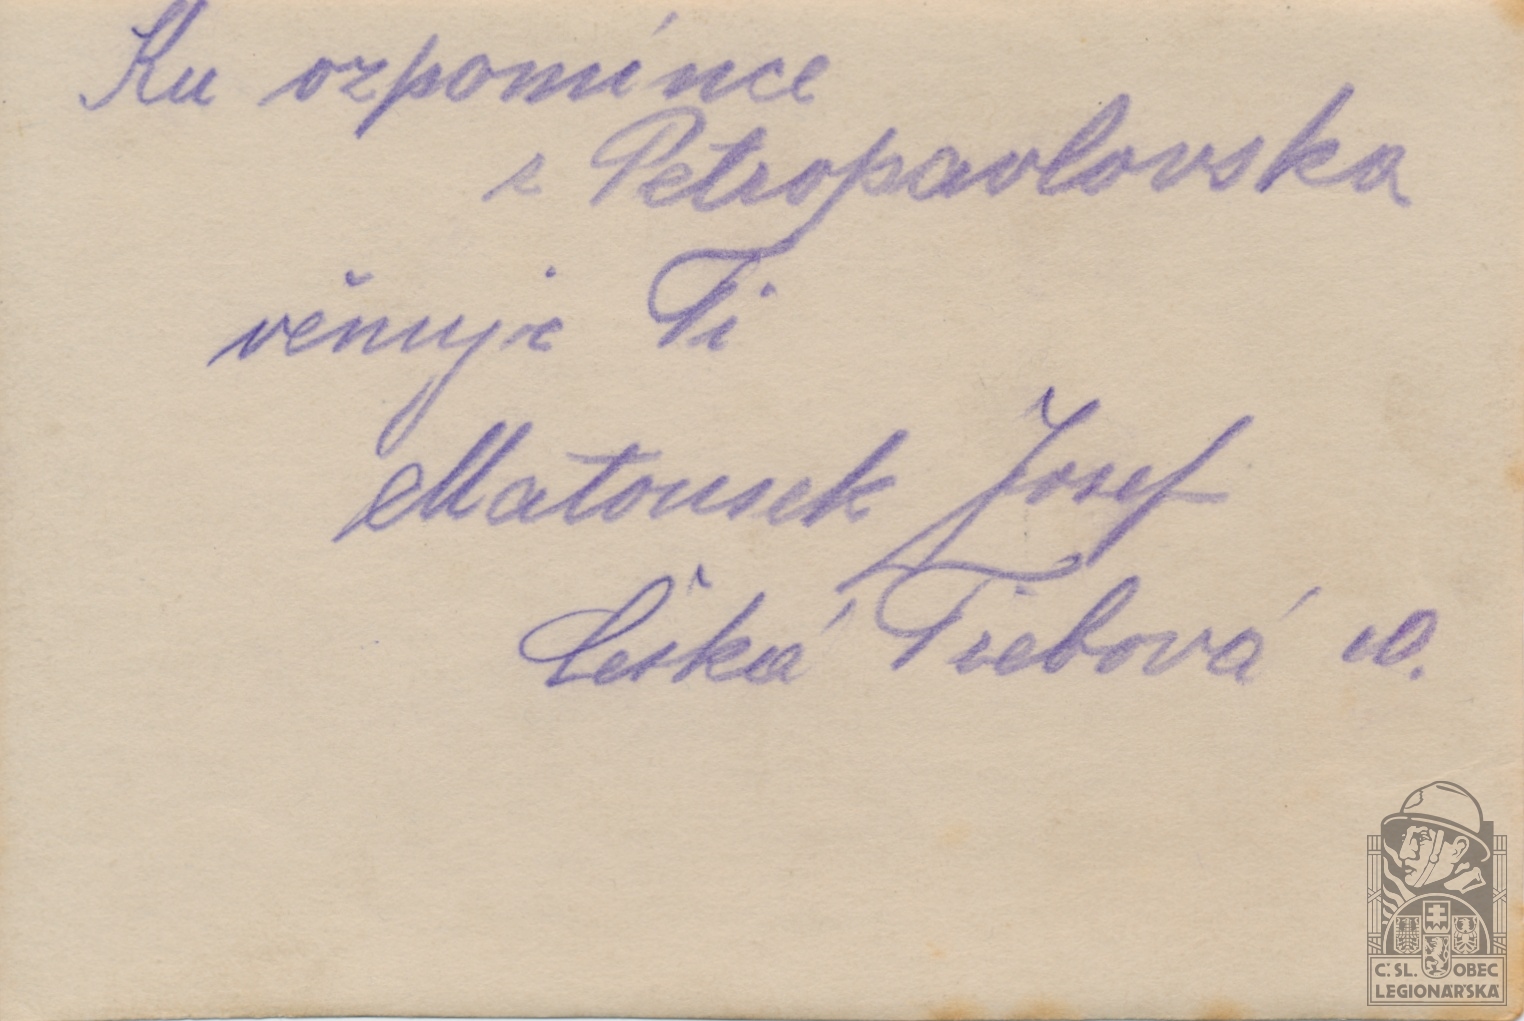 Ku vzpomínce
z Petropavlovska
věnuje Ti
Matousek Josef
Česká Třebová
Č.SL. OBEC
LEGIONÁŘSKÁ